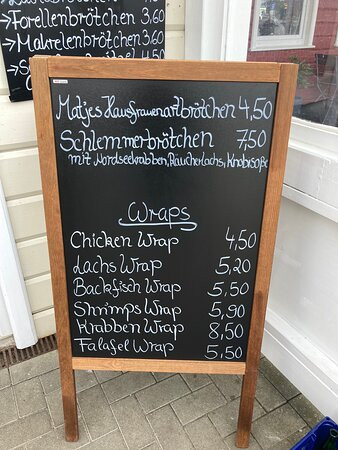 Forellenbrötchen 3.60
Makrelenbrötchen 3.60
Matjes Hausfrauenartbrötchen 4,50
Schlemmerbrötchen 7,50
mit Nordseekrabben, Räucherlachs, Knobisoße
Wraps
Chicken Wrap 4,50
Lachs Wrap 5,20
Backfisch Wrap 5,50
Shrimps Wrap 5,90
Krabben Wrap 8,50
Falafel Wrap 5,50